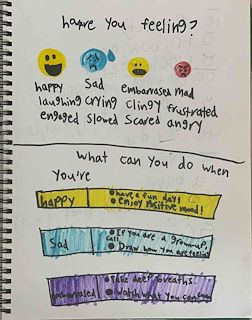 hawre you feeling?
happy Sad embarrased mad
laughing crying clingy frustrated
engeged slowed scared angry
What can you do when
You're
happy
have a fun day!
Enjoy Positive mood!
Sad
If you are a grownup,
call
Draw how you are feeling
embarrased
Take deep breaths.
Watch what you can